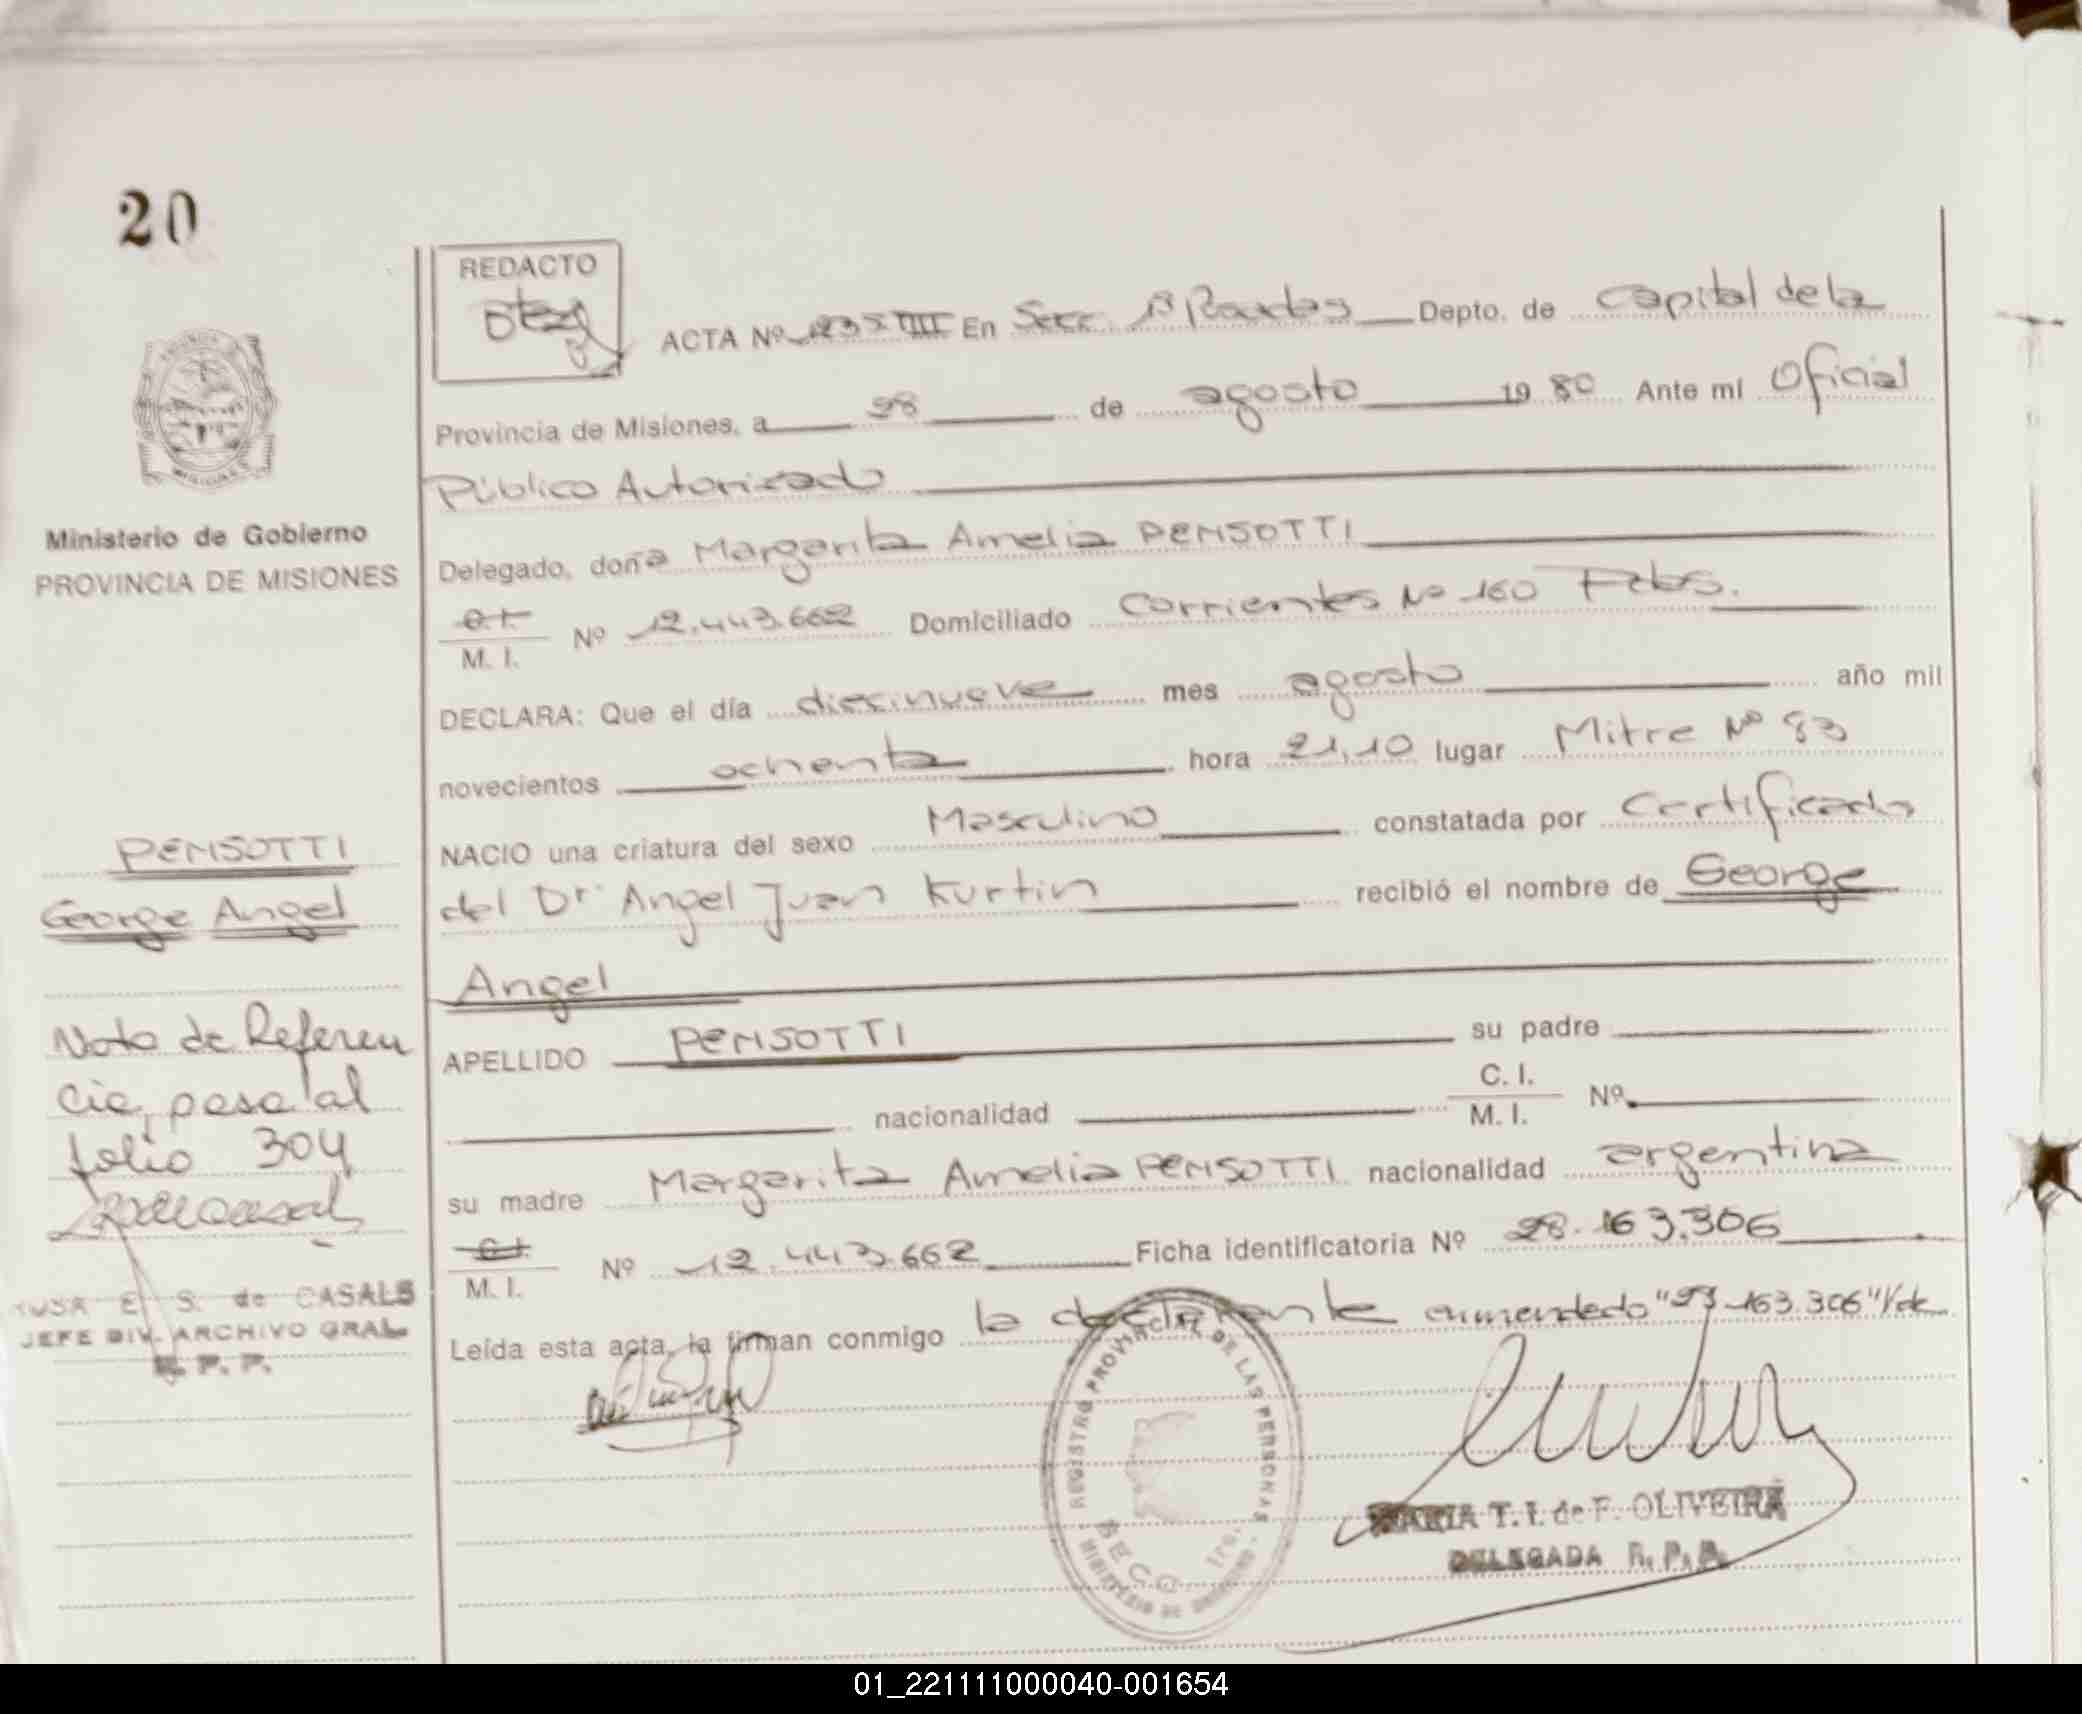 20
REDACTO
ACTA Nº 1235 VIII En Secc. 1ª Posadas Depto. de Capital de la
Provincia de Misiones, a 28 de agosto 19 80 Ante mí Oficial
Público Autorizado
Delegado, doña Margarita Amelia PENSOTTI
C.I.
M. I. Nº 12.443.662 Domiciliado Corrientes Nº 160 Pdas.
DECLARA: Que el día diecinueve mes agosto año mil
novecientos ochenta hora 21,10 lugar Mitre Nº 83
NACIO una criatura del sexo Masculino constatada por Certificado
del Dr Angel Juan Kurtin recibió el nombre de George
Angel
APELLIDO PENSOTTI su padre
nacionalidad C. I.
M. I. Nº
su madre Margarita Amelia PENSOTTI nacionalidad argentina
C.I.
M. I. Nº 12.443.662 Ficha identificatoria Nº 28.163.306
Leída esta acta, la firman conmigo la declarante enmendado "28-163.306" Vale
REGISTRO PROVINCIAL DE LAS PERSONAS
MINISTERIO DE GOBIERNO
SECC.
MARIA T. I. de F. OLIVEIRA
DELEGADA R. P. P.
Ministerio de Gobierno
PROVINCIA DE MISIONES
PENSOTTI
George Angel
Nota de Referen
cia, pasa al
folio 304
E. S. de CASALS
JEFE DIV. ARCHIVO GRAL
R. P. P.
01_221111000040-001654